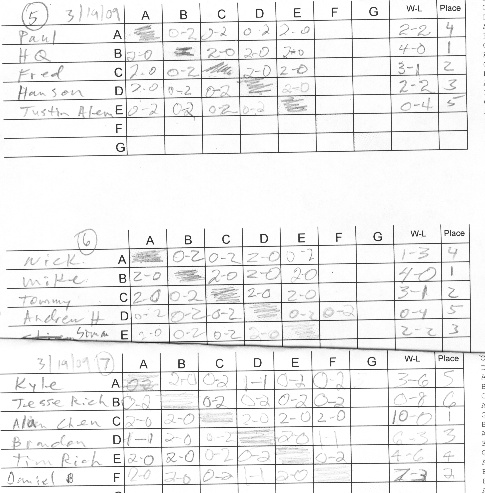 5 3/19/09 A B C D E F G W-L Place
Paul A 0-2 0-2 0-2 2-0 2-2 4
HQ B 2-0 2-0 2-0 2-0 4-0 1
Fred C 2-0 0-2 2-0 2-0 3-1 2
Hanson D 2-0 0-2 0-2 2-0 2-2 3
Justin E 0-2 0-2 0-2 0-2 0-4 5
F
G
6 A B C D E F G W-L Place
Nick A 0-2 0-2 2-0 0-2 1-3 4
Mike B 2-0 2-0 2-0 20 4-0 1
Tommy C 2-0 0-2 2-0 2-0 3-1 2
Andrew H D 0-2 0-2 0-2 0-2 0-2 0-4 5
E 0-2 0-2 2-0 2-2 3
3/19/09 7 A B C D E F G W-L Place
Kyle A 2-0 0-2 1-1 0-2 0-2 3-6 5
Jesse Rich B 0-2 0-2 0-2 0-2 0-2 0-8 6
Chen C 2-0 2-0 2-0 2-0 2-0 10-0 1
Brandon D 1-1 2-0 0-2 2-0 1-1 3
Tim Rich E 2-0 2-0 0-2 0-2 0-2 4-6 4
Daniel B F 2-0 2-0 0-2 1-1 2-0 7-3 2